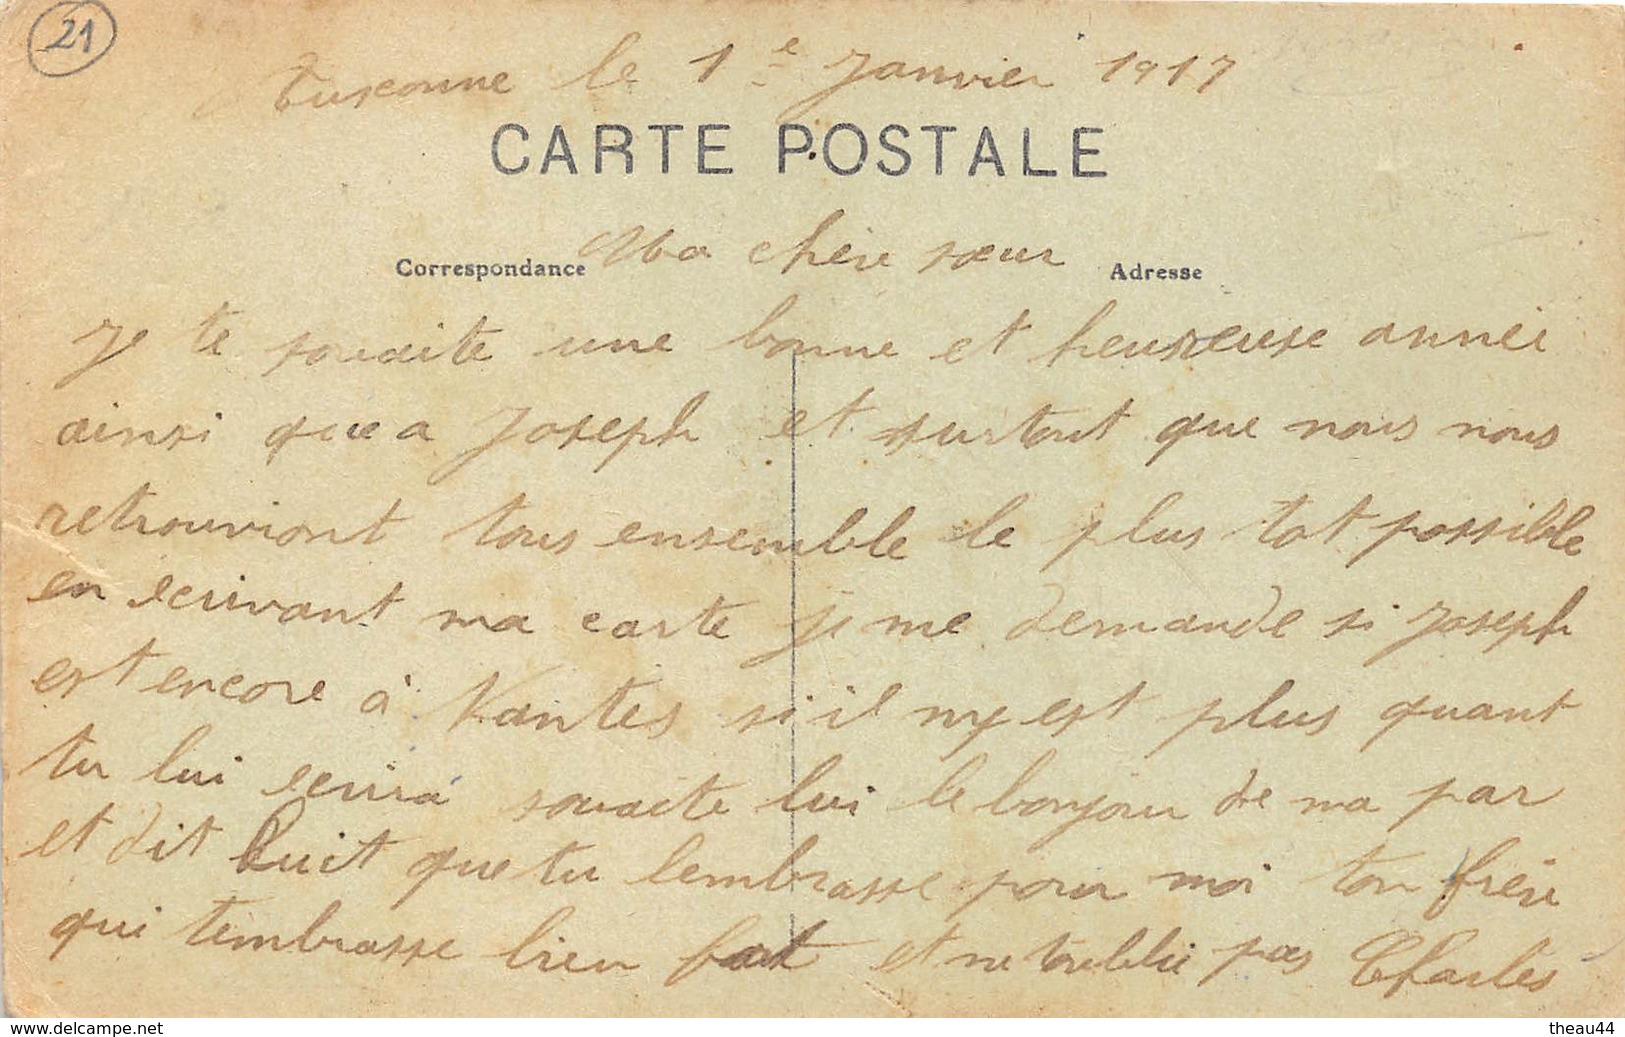 21
le 1e Janvier 1917
CARTE POSTALE
Ma chère sœur
Correspondance
Adresse
Je te souaite une bonne et heureuse année
ainsi que a Joseph et surtout que nous nous
retrouviont tous ensemble le plus tot possible
en ecrivant ma carte je me demande si Joseph
est encore à Nantes si il ny est plus quant
tu lui ecrira souaite lui le bonjour de ma par
et dit luit que tu lembrasse pour moi ton frère
qui tembrasse bien fort et ne toublie pas Charles
www.delcampe.net
theau44